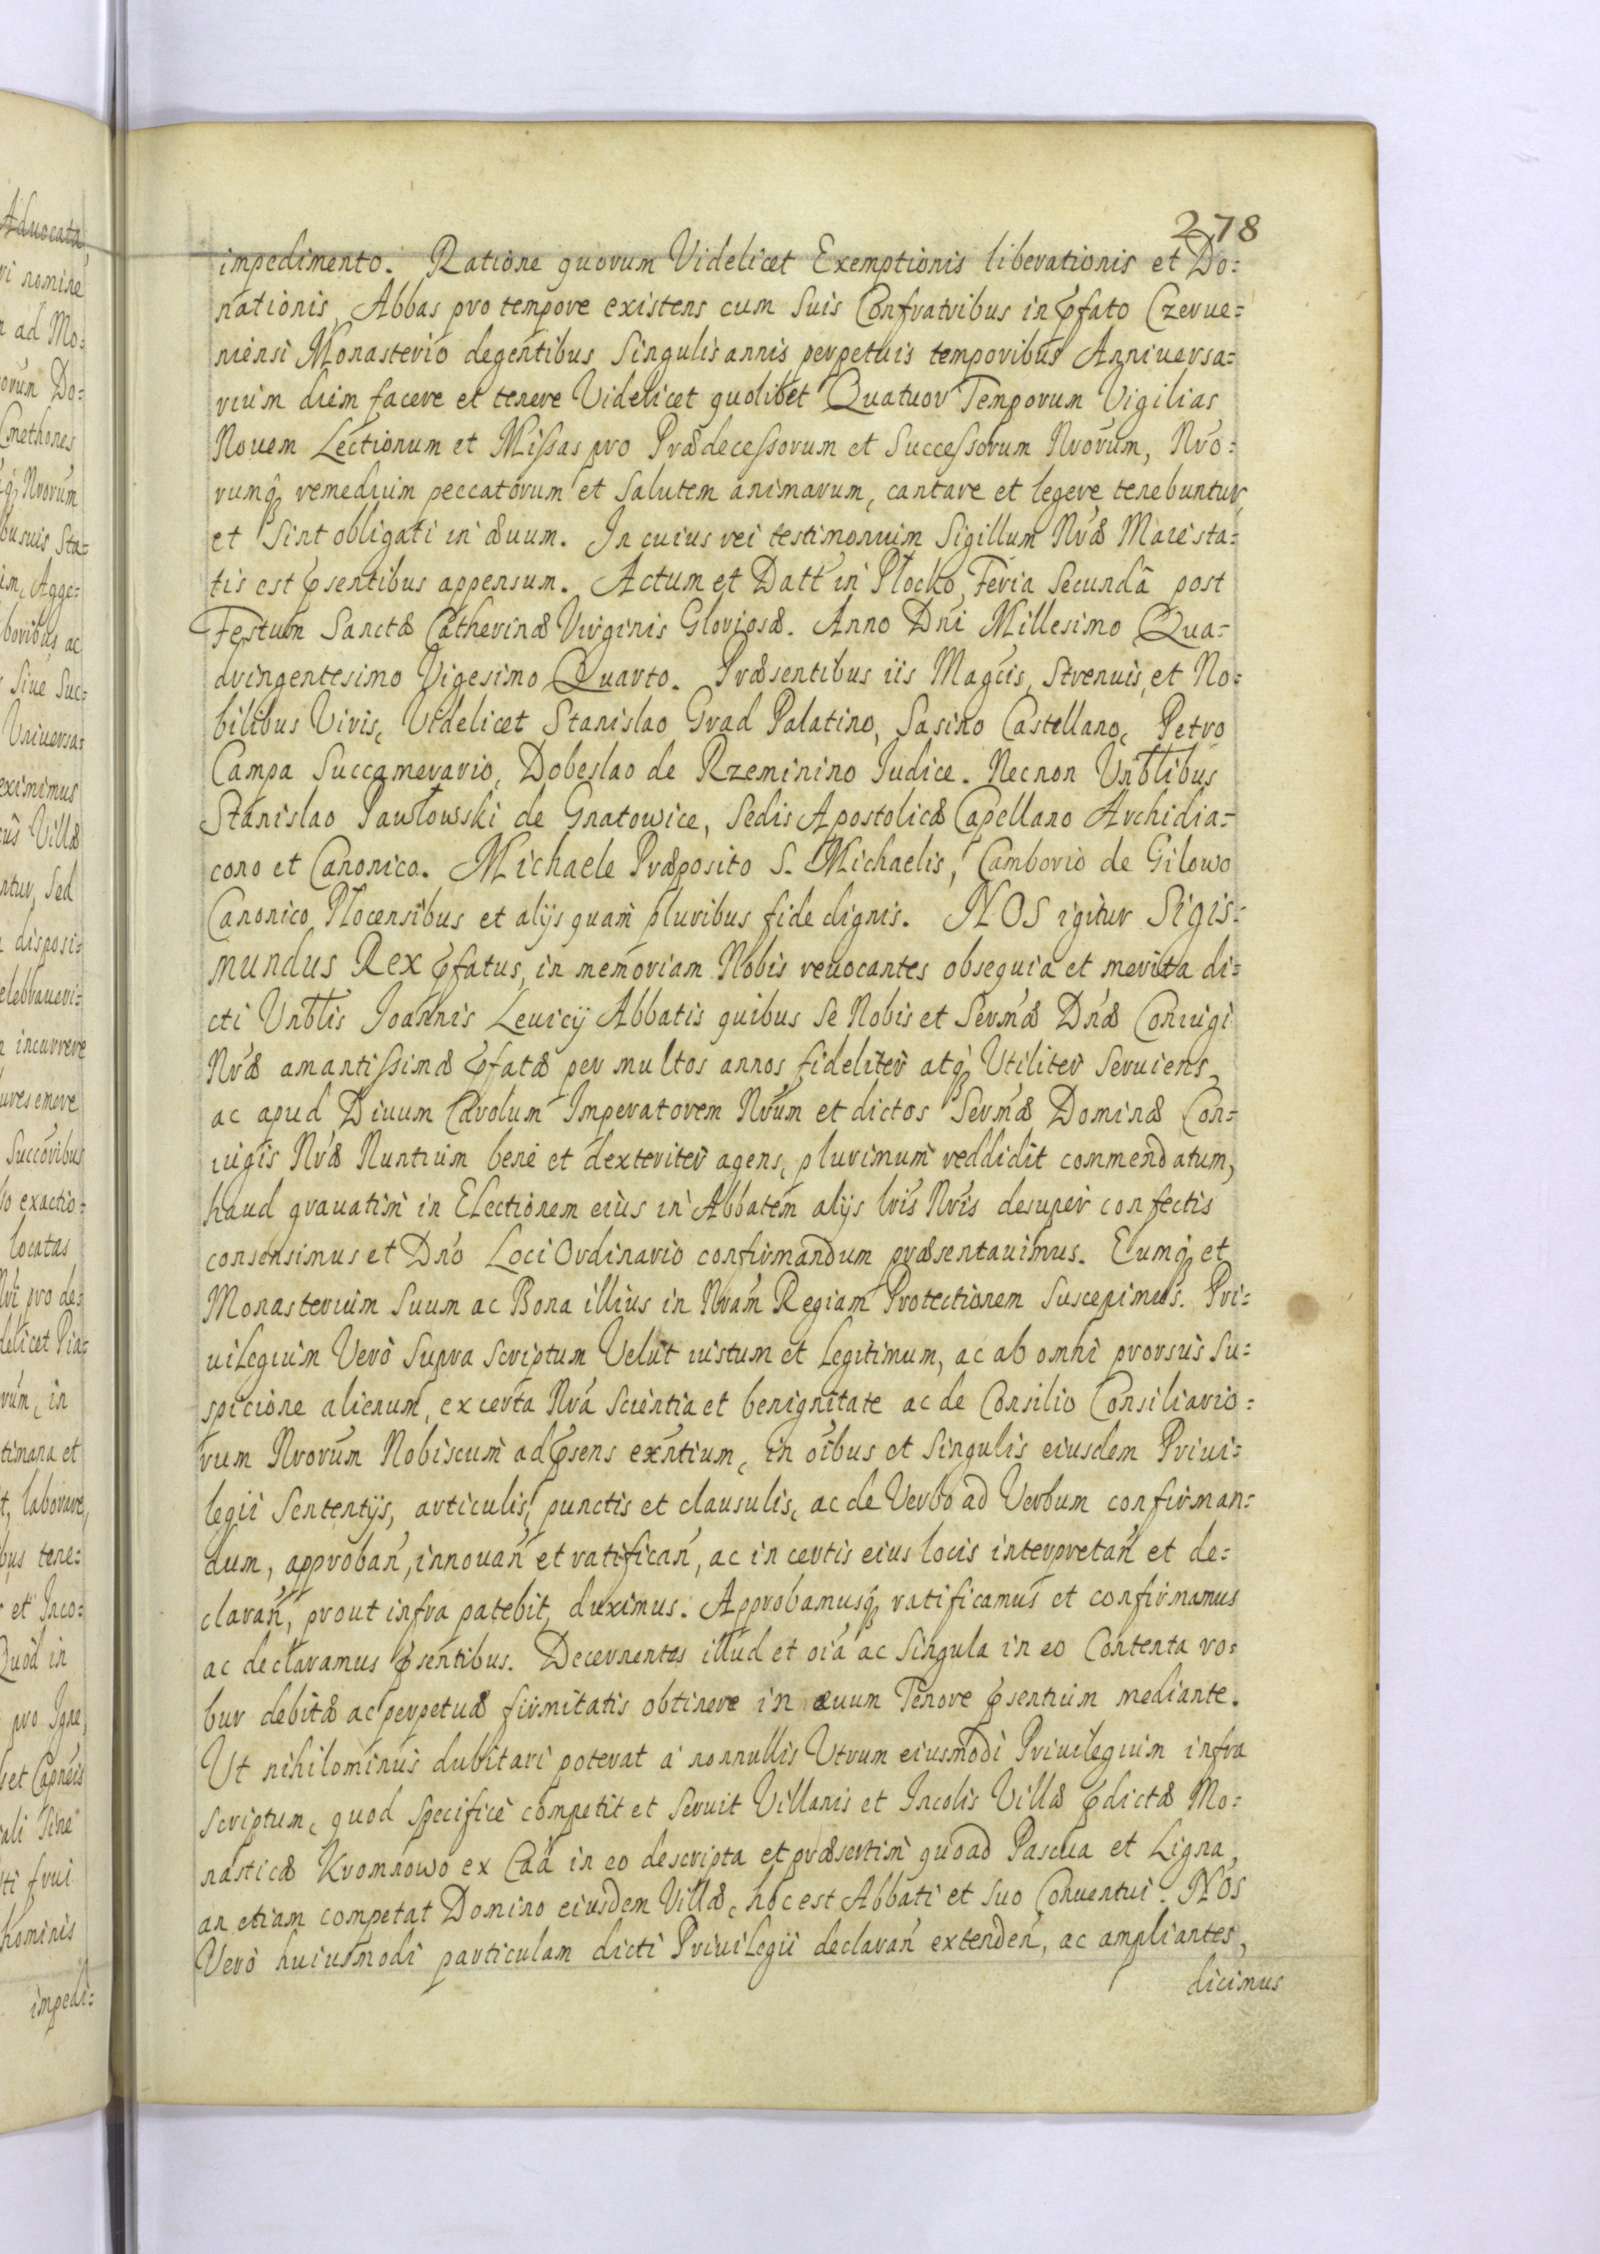 278
impedimento. Ratione quorum Videlicet Exemptionis liberationis et Do=
nationis, Abbas pro tempore existens cum suis Confratribus in pfato Czerue=
niensi Monasterio degentibus singulis annis perpetuis temporibus Anniuersa=
rium diem facere et tenere Videlicet quolibet Quatuor Temporum Vigilias
Nouem Lectionum et Missas pro Prædecessorum et Successorum Nrorum, Nro=
rumq remedium peccatorum et salutem animarum, cantare et legere tenebuntur,
et sint obligati in æuum. In cuius rei testimonium Sigillum Nræ Maiesta=
tis est psentibus appensum. Actum et Datt in Płocko, Feria Secundâ post
Festum Sanctæ Catherinæ Virginis Gloriosæ. Anno Dni Millesimo Qua=
dringentesimo Vigesimo Quarto. Præsentibus iis Magcis, Strenuis, et No=
bilibus Viris, Videlicet Stanislao Grad Palatino, Sasino Castellano, Petro
Campa Succamerario, Dobeslao de Rzeminino Iudice. Necnon Vnbtlibus
Stanislao Pawłowski de Gnatowice, Sedis Apostolicæ Capellano Archidia=
cono et Canonico. Michaele Præposito S. Michaelis, Camborio de Gilowo
Canonico Płocensibus et alijs quam pluribus fide dignis. NOS igitur Sigis=
mundus Rex pfatus, in memoriam Nobis reuocantes obsequia et merita di=
cti Vnbtlis Joannis Leuicij Abbatis quibus se Nobis et Sermæ Dnæ Coniugi
Nræ amantissimæ pfatæ per multos annos fideliter atq Utiliter seruiens,
ac apud Diuum Carolum Imperatorem Nrum et dictos Sermæ Dominæ Con=
iugis Nræ Nuntium bene et dexteriter agens, plurimum reddidit commendatum,
haud grauatim in Electionem eius in Abbatem alijs lris Nris desuper confectis
consensimus et Dno Loci Ordinario confirmandum præsentauimus. Eumq et
Monasterium suum ac Bona illius in Nram Regiam Protectionem suscepimus. Pri=
uilegium Verò supra scriptum Velut iustum et legitimum, ac ab omni prorsus su=
spicione alienum, ex certa Nra scientia et benignitate ac de Consilio Consiliario=
rum Nrorum Nobiscum ad psens exntium, in oibus et singulis eiusdem Priui=
legii sententijs, articulis, punctis et clausulis, ac de Verbo ad Verbum confirman=
dum, approban, innouan et ratifican, ac in certis eius locis interpretan et de=
claran, prout infra patebit, duximus. Approbamusq ratificamus et confirmamus
ac declaramus psentibus. Decernentes illud et oia ac singula in eo Contenta ro=
bur debitæ ac perpetuæ firmitatis obtinere in æuum Tenore psentium mediante.
Ut nihilominus dubitari poterat à nonnullis Utrum eiusmodi Priuilegium infra
scriptum, quod specificè competit et seruit Villanis et Incolis Villæ pdictæ Mo=
nasticæ Kromnowo ex Caa in eo descripta et præsertim quoad Pascua et Ligna,
an etiam competat Domino eiusdem Villæ, hoc est Abbati et suo Conuentui. NOS
Verò huiusmodi particulam dicti Priuilegii declaran extenden, ac ampliantes,
dicimus